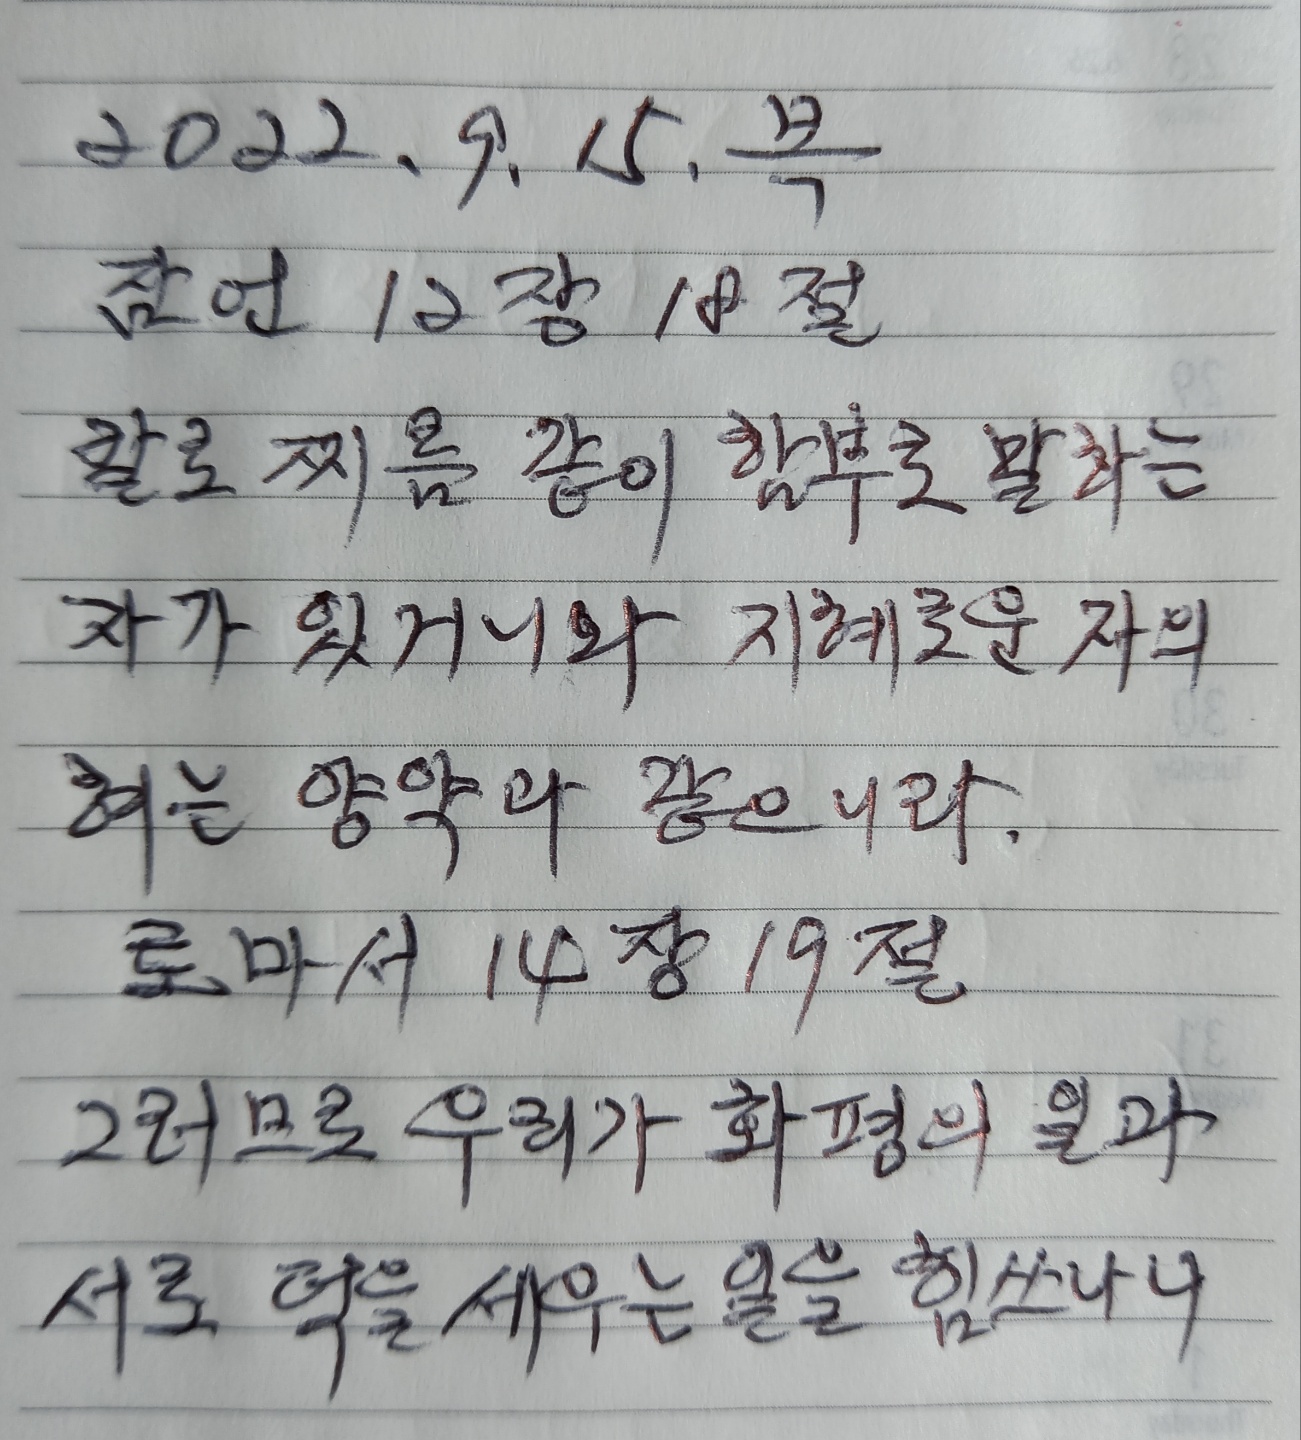 2022. 9. 15. 목
잠언 12장 18절
칼로 찌름 같이 함부로 말하는
자가 있거니와 지혜로운 자의
혀는 양약과 같으니라.
로마서 14장 19절
그러므로 우리가 화평의 일과
서로 덕을 세우는 일을 힘쓰나니